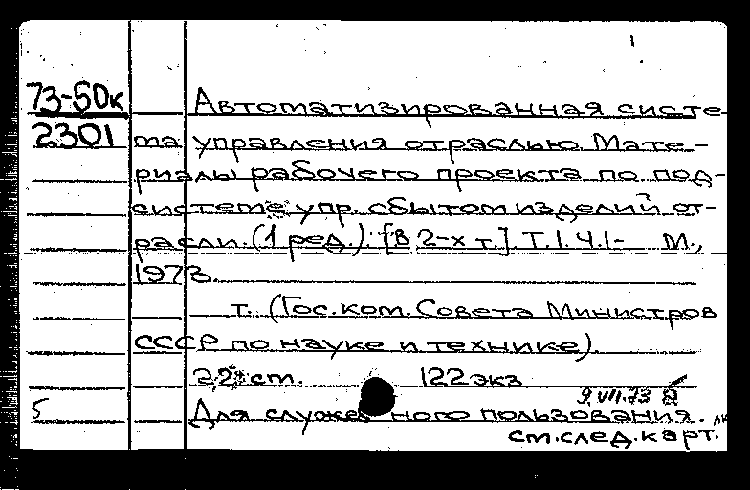 73-50к Автоматизированная систе
2301 ма управления отраслью. Мате-
риалы рабочего проекта по под-
системе упр. сбытом изделий от-
расли. (1 ред.). [В 2-х т.] Т.1. Ч.1- М.,
1973.
т. (Гос. ком. Совета Министров
СССР по науке и технике).
22 см. 122 экз
9.VII.73
5 Для служебного пользования.
см. след. карт.